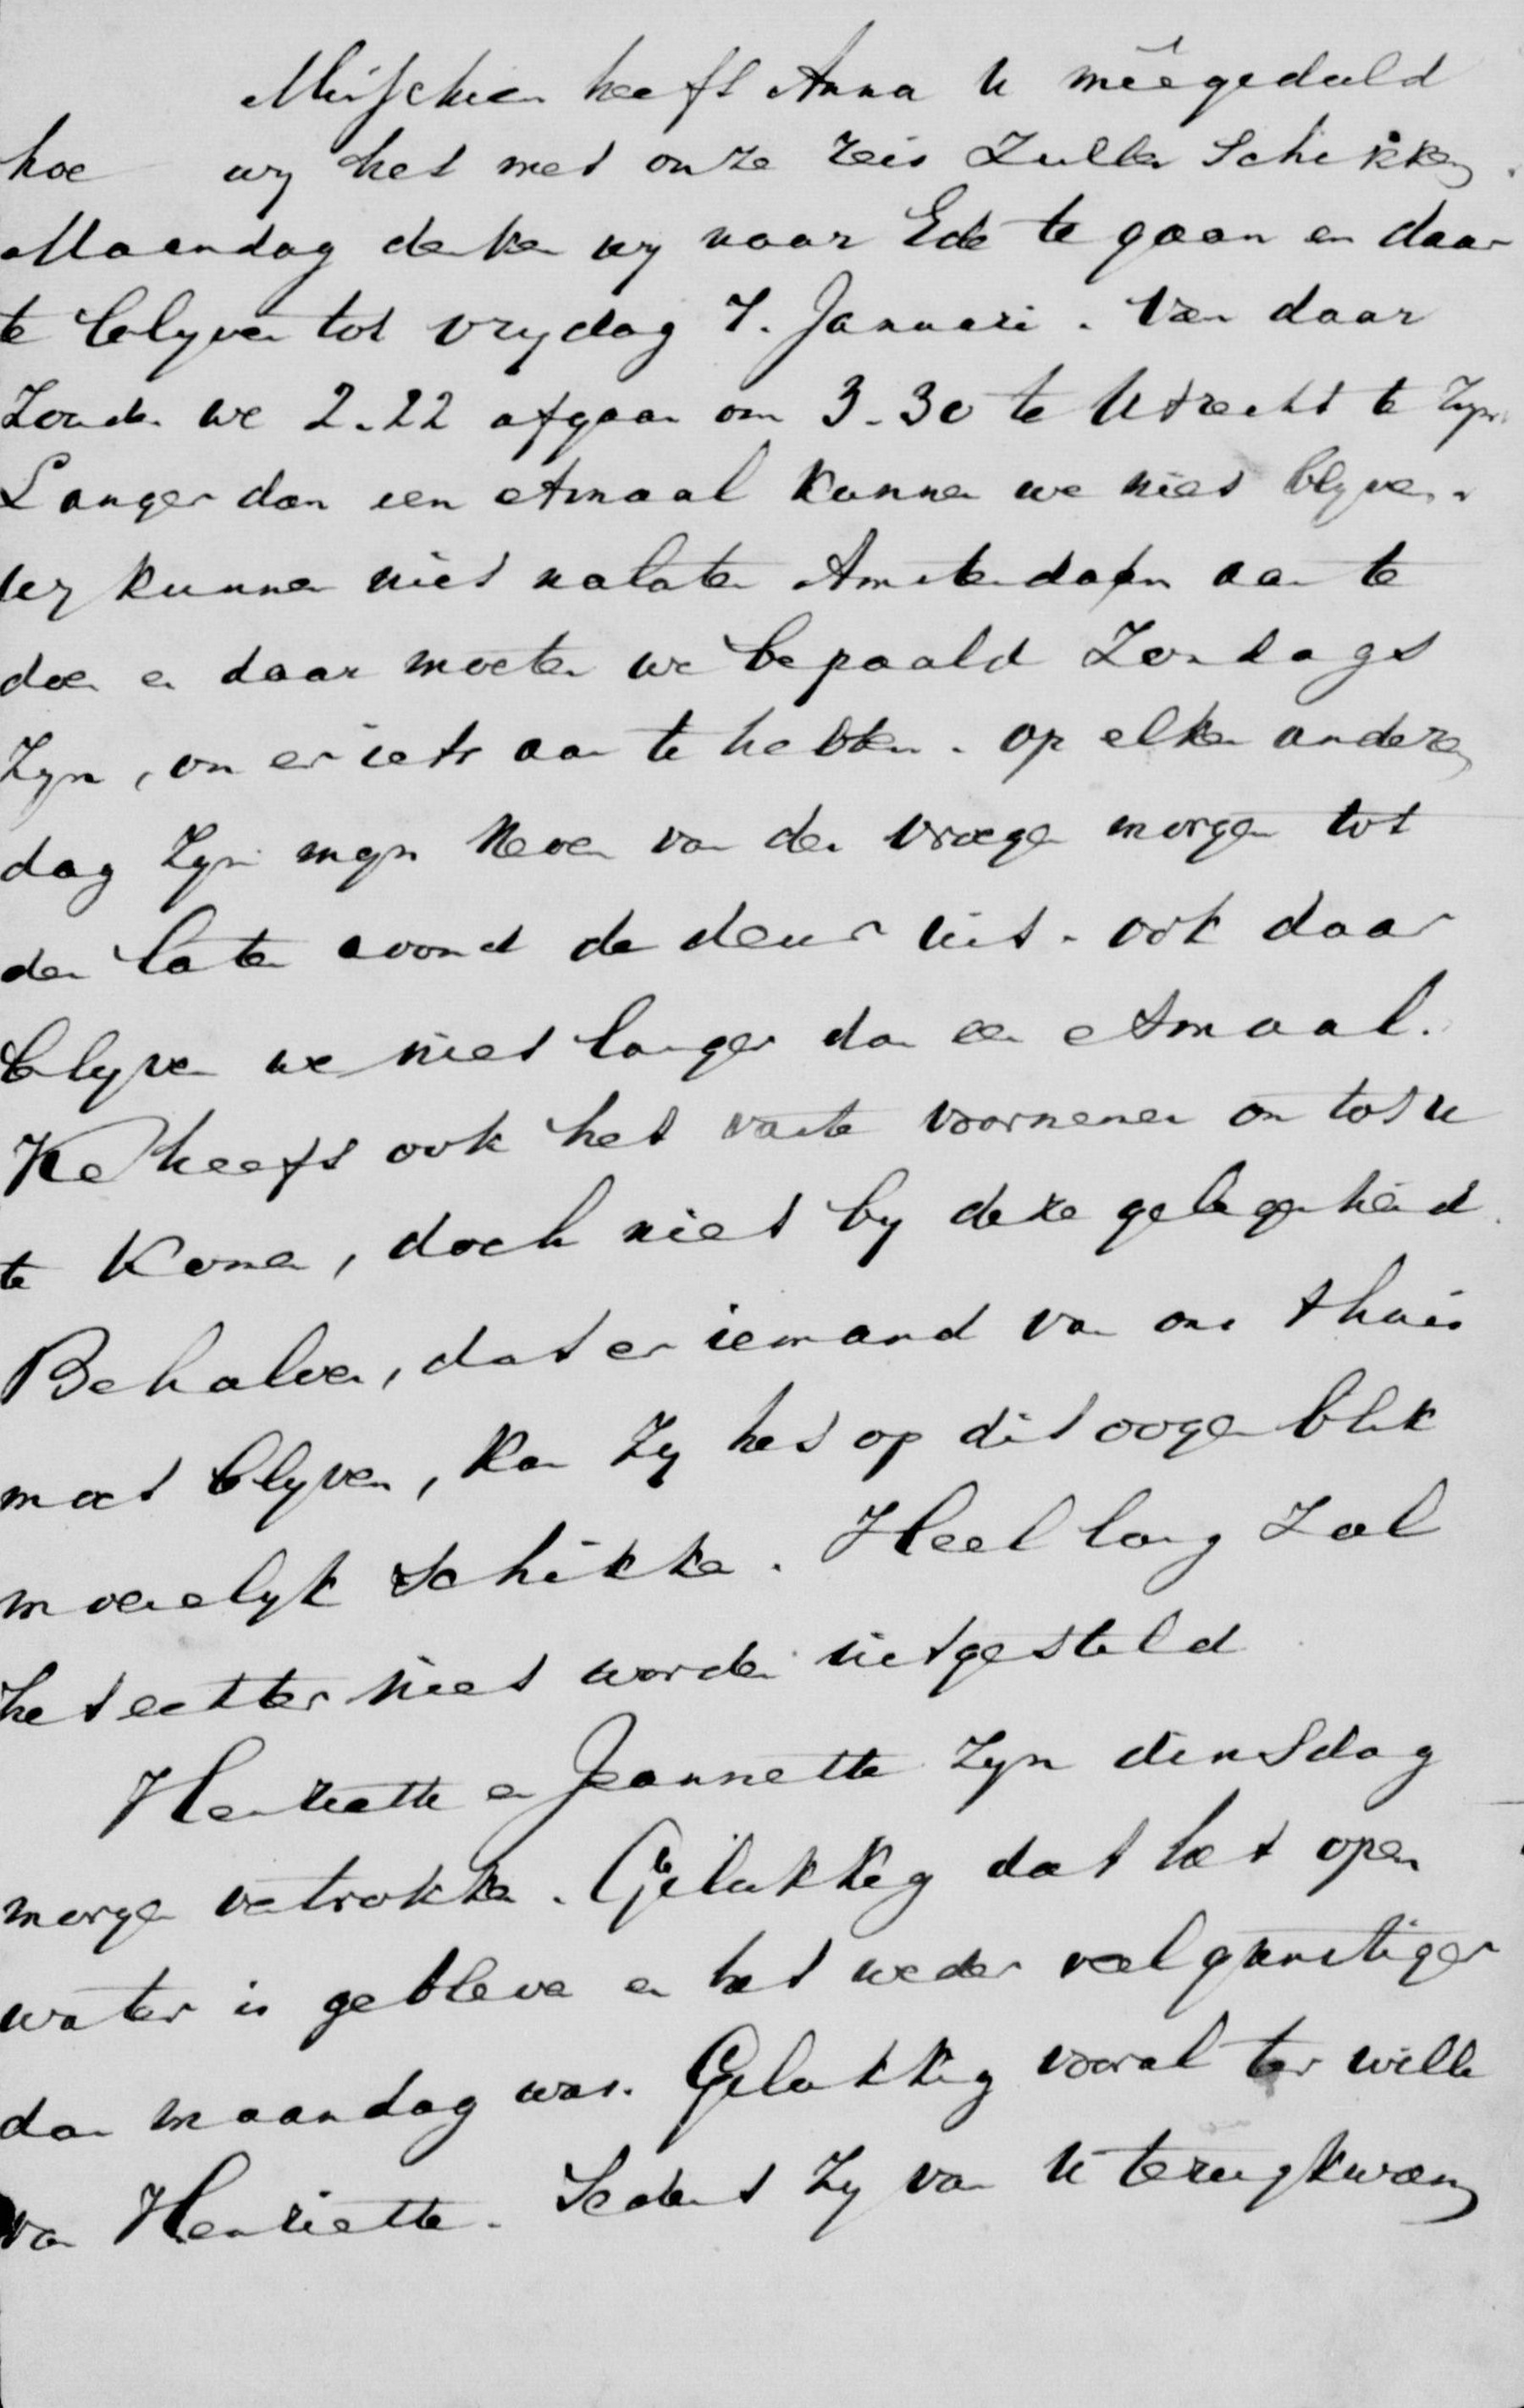 Misschien heeft Anna U meêgedeeld
hoe wy het met onze reis Zullen Schikken.
Maandag denken wy naar Ede te gaan en daar
te blyven tot vrydag 7. Januari. Van daar
Zouden we 2.22 afgaan om 3.30 te Utrecht te Zyn.
Langer dan een etmaal kunnen we niet blyven.
Wy kunnen niet nalaten Amsterdam aan te
doen en daar moeten we bepaald Zondags
Zyn, om er iets aan te hebben. Op elken anderen
dag Zyn myn Neven van den vroegen morgen tot
den laten avond de deur uit. Ook daar
blyven we niet langer dan een etmaal.
Ke heeft ook het vaste voornemen om tot u
te komen, doch niet by deze gelegenheid.
Behalve, dat er iemand van ons thuis
moet blyven, kan Zy het op dit oogenblik
moeielyk schikken. Heel lang Zal
het echter niet worden uitgesteld
Henriette en Jeannette Zyn dinsdag
morgen vertrokken. Gelukkig dat het open
water is gebleven en het weder veel gunstiger
dan maandag was. Gelukkig vooral ter wille
van Henriette. Sedert Zy van U terugkwam